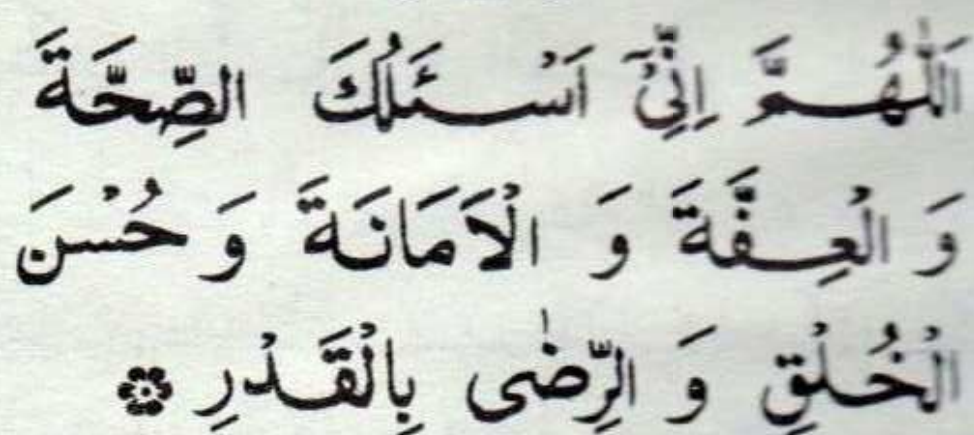 اَللّٰهُمَّ اِنِّیْٓ اَسْئَلُكَ الصِّحَّةَ
وَ الْعِفَّةَ وَ الْاَمَانَةَ وَ حُسْنَ
الْخُلْقِ وَ الرِّضٰی بِالْقَدْرِ ۞